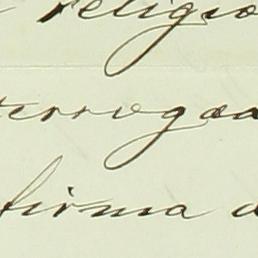 religio
terrogaa
firma a